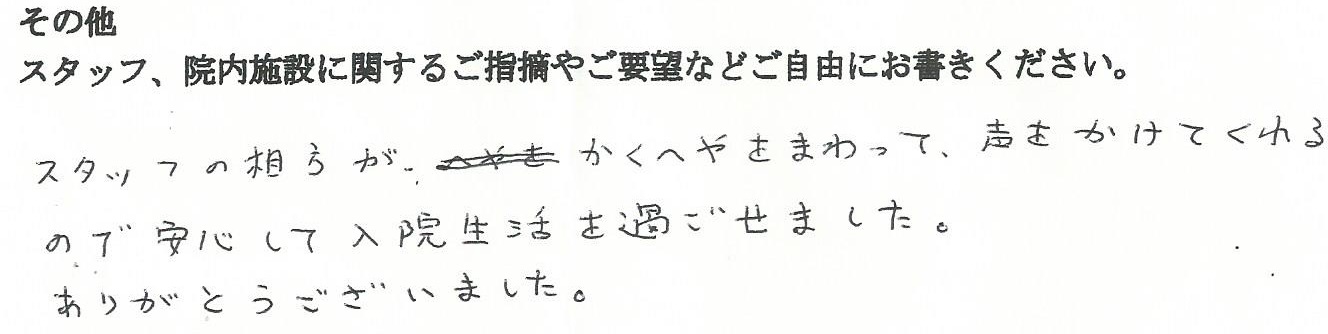 その他
スタッフ、院内施設に関するご指摘やご要望などご自由にお書きください。
スタッフの相方が、かくへやをまわって、声をかけてくれる
ので安心して入院生活を過ごせました。
ありがとうございました。